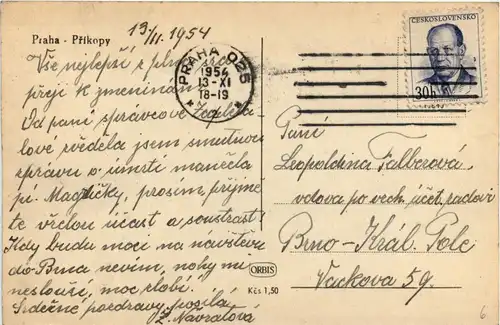 Praha - Příkopy
13/11. 1954
Vše nejlepší z plna srdce
přeji k zmeninám
Od paní správcové
lové zvěděla jsem smutnou
zprávu o úmrtí manžela
pí. prosím přijmě
te vřelou účast a soustrast!
Kdy budu moci na návštevu
do Brna nevím, nohy mi
neslouží, moc zlobí.
Srdečné pozdravy posílá
Ž. Navrátová
PRAHA 025
1954
13-XI
18-19
ČESKOSLOVENSKO
30h
Paní
Leopoldina Falberová,
vdova po vech. účet. radovi
Brno - Král. Pole
Vackova 59.
ORBIS
Kčs 1,50
6